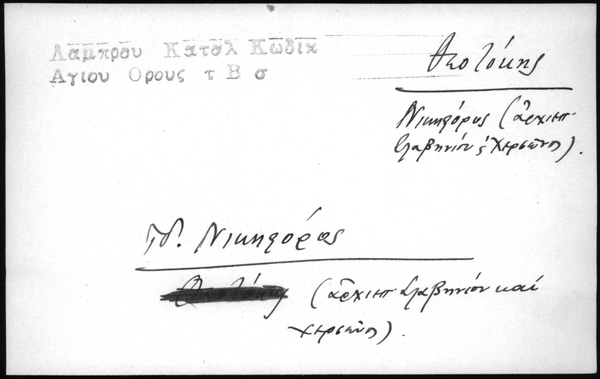 Λαμπρου Καταλ Κωδικ
Αγιου Ορους τ Β σ
Θεοτόκης
Νικηφόρος (ἀρχιεπ.
Σλαβηνίου ς Χερσῶνος).
Ἰδ. Νικηφόρος
Θεοτόκης (ἀρχιεπ. Σλαβηνίου καί
Χερσῶνος).